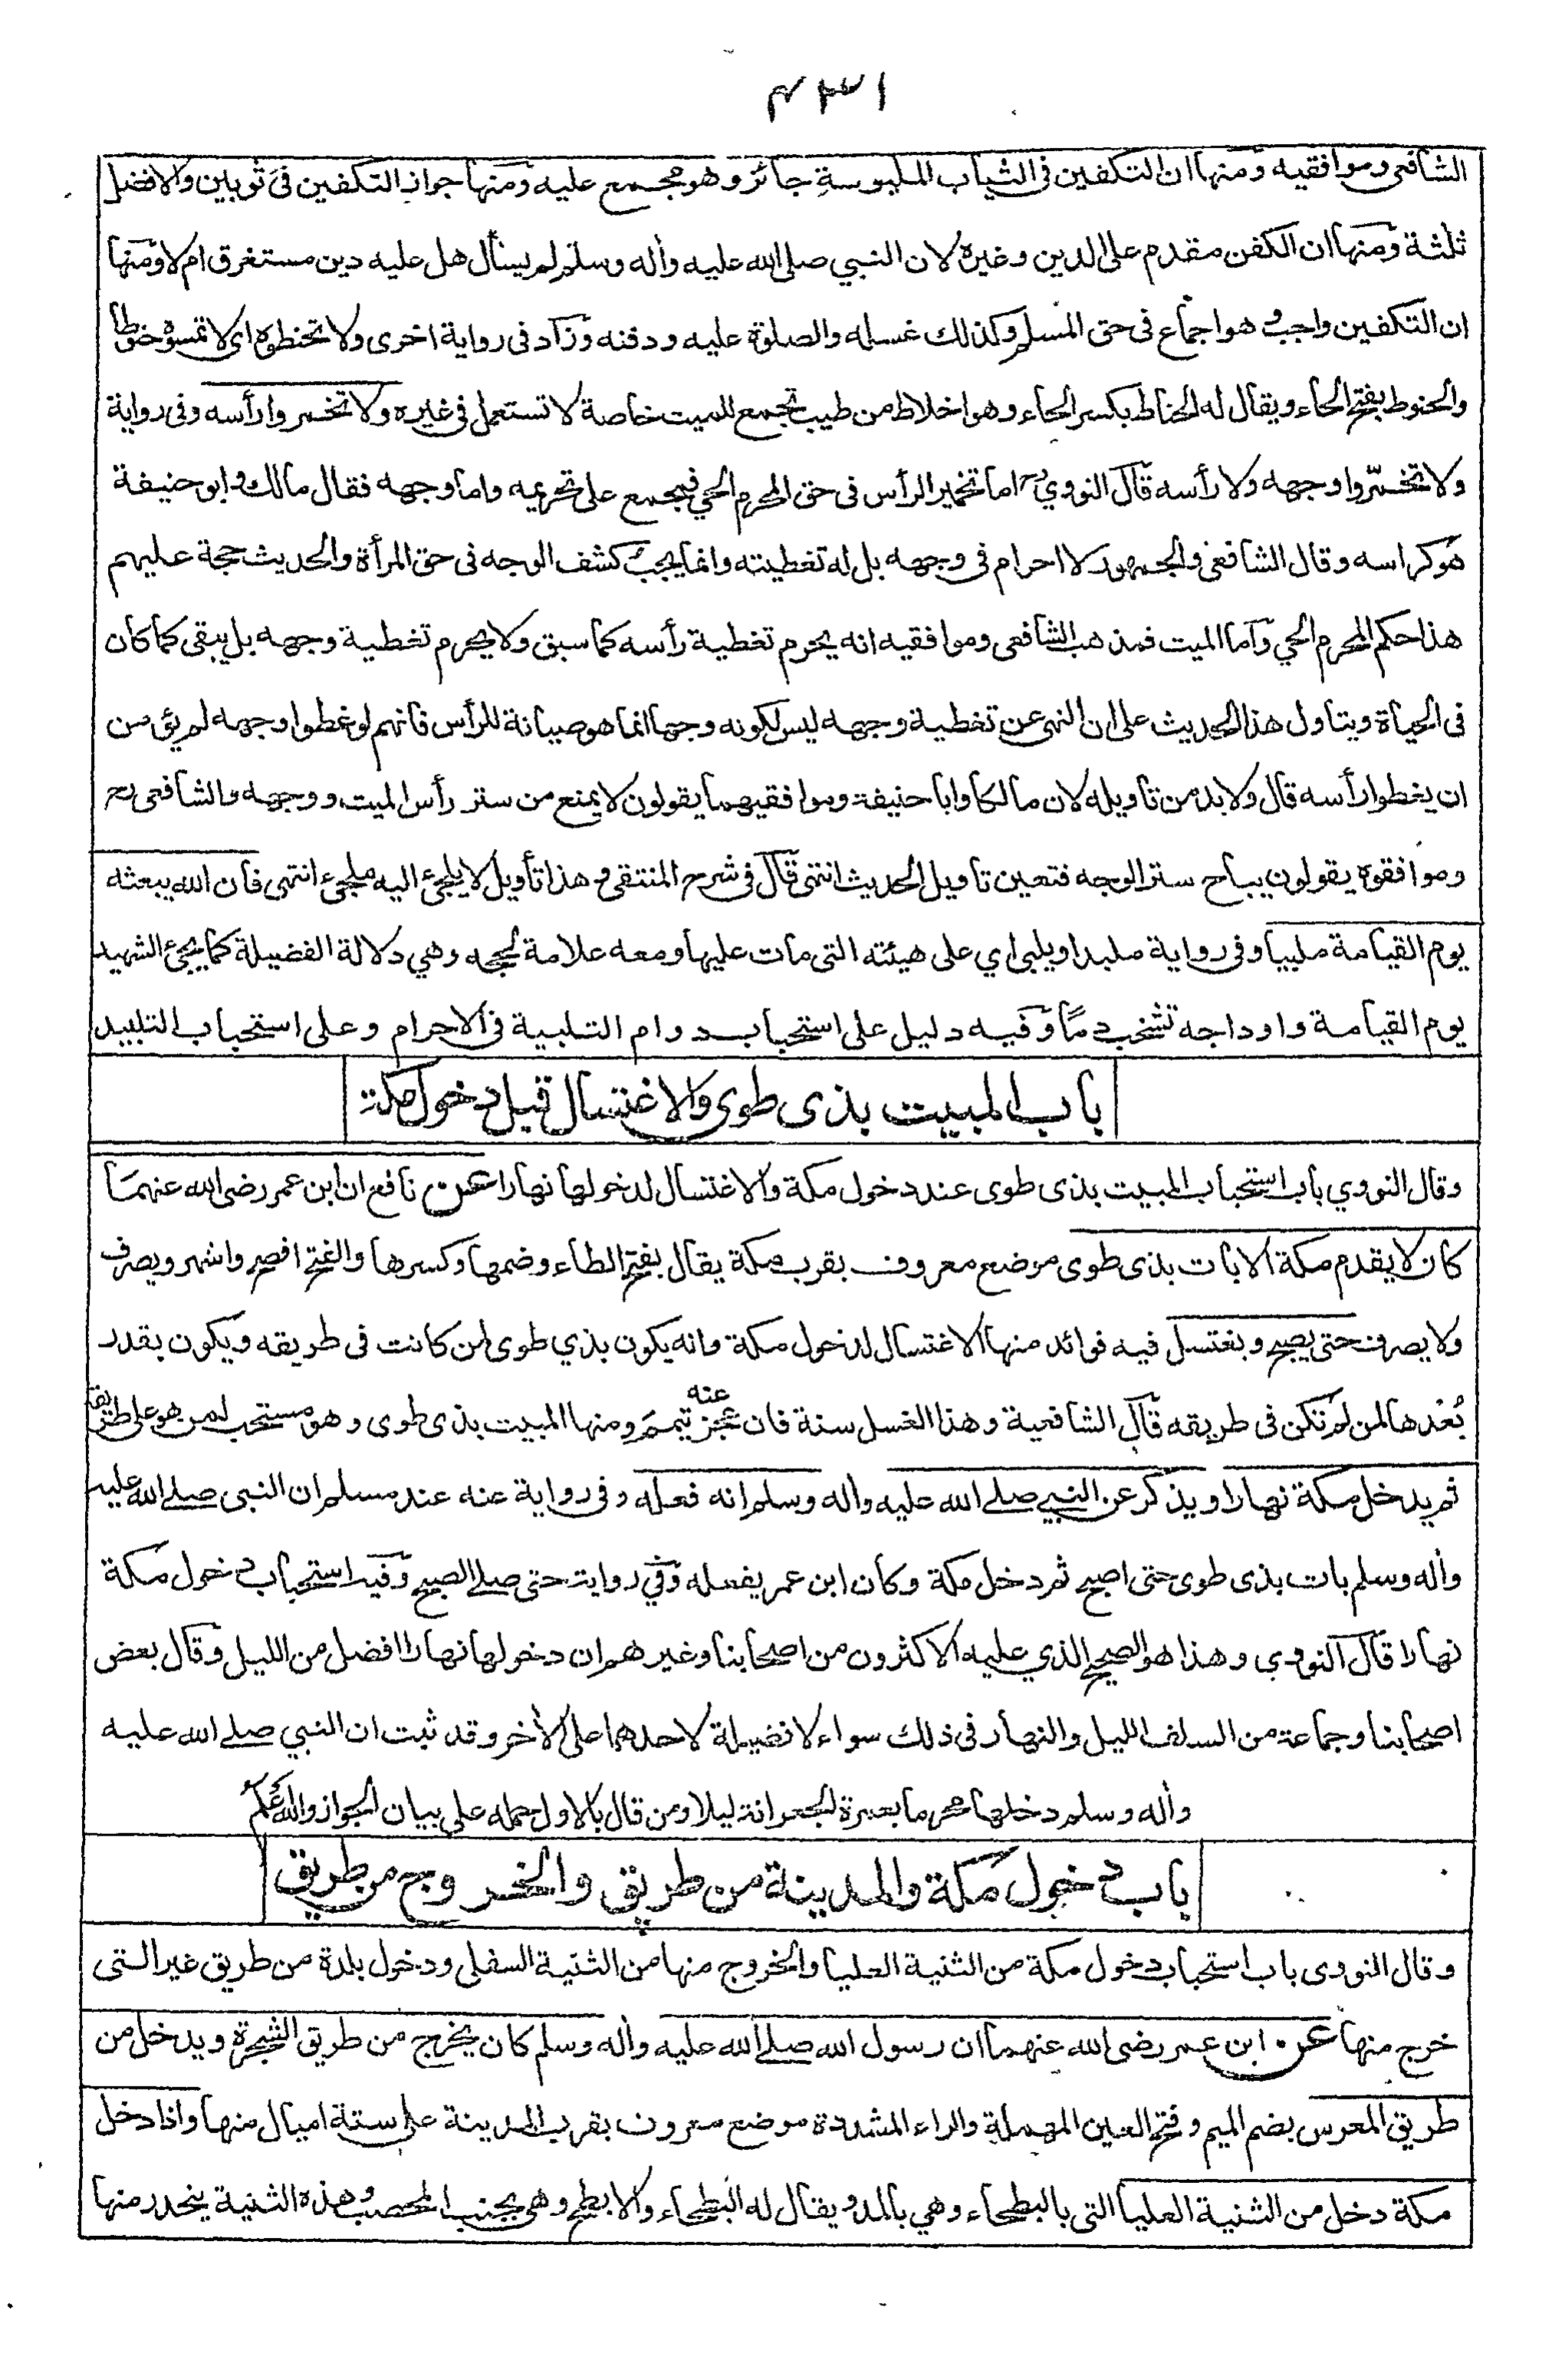 ٤٣١
الشافعى وموافقيه ومنها ان التكفين فى الثياب الملبوسة جائز وهو مجمع عليه ومنها جواز التكفين فى ثوبين والافضل
ثلثة ومنها ان الكفن مقدم على الدين وغيره لان النبي صلى الله عليه وأله وسلم لم يسأل هل عليه دين مستغرق ام لا ومنها
ان التكفين واجب وهو اجماع فى حق المسلم وكذلك غسله والصلوة عليه ودفنه وزاد فى رواية اخرى ولا تحنطوه اى لا تمسوه حنوطا
والحنوط بفتح الحاء ويقال له الحناط بكسر الحاء وهو اخلاط من طيب تجمع للميت خاصة لا تستعمل فى غيره ولا تخمروا رأسه وفى رواية
ولا تخمّروا وجهه ولا رأسه قال النووي رح اما تخمير الرأس فى حق المحرم الحي فمجمع على تحريمه واما وجهه فقال مالك وابو حنيفة
هو كراسه وقال الشافعى والجمهور لا احرام فى وجهه بل له تغطيته وانما يجب كشف الوجه فى حق المرأة والحديث حجة عليهم
هذا حكم المحرم الحي واما الميت فمذهب الشافعى وموافقيه انه يحرم تغطية رأسه كما سبق ولا يحرم تغطية وجهه بل يبقى كما كان
فى الحياة ويتاول هذا الحديث على ان النهى عن تغطية وجهه ليس لكونه وجها انما هو صيانة للرأس فانهم لو غطوا وجهه لم يؤمن
ان يغطوا رأسه قال ولا بد من تاويله لان مالكا وابا حنيفة وموافقيهما يقولون لا يمنع من ستر رأس الميت ووجهه والشافعى رح
وموافقوه يقولون يباح ستر الوجه فتعين تاويل الحديث انتهى قال فى شرح المنتقى وهذا تأويل لا يلجئ اليه ملجئ انتهى فان الله يبعثه
يوم القيامة ملبيا وفى رواية ملبدا ويلبى اي على هيئته التى مات عليها ومعه علامة لحجه وهي دلالة الفضيلة كما يجئ الشهيد
يوم القيامة واوداجه تشخب دمًا وفيه دليل على استحباب دوام التلبية فى الاحرام وعلى استحباب التلبيد
باب المبيت بذى طوى والاغتسال قبل دخول مكة
وقال النووي باب استحباب المبيت بذى طوى عند دخول مكة والاغتسال لدخولها نهارا عن نافع ان ابن عمر رضى الله عنهما
كان لا يقدم مكة الا بات بذى طوى موضع معروف بقرب مكة يقال بفتح الطاء وضمها وكسرها والفتح افصح واشهر ويصرف
ولا يصرف حتى يصبح ويغتسل فيه فوائد منها الاغتسال لدخول مكة وانه يكون بذي طوى لمن كانت فى طريقه ويكون بقدر
بُعْدها لمن لم تكن فى طريقه قال الشافعية وهذا الغسل سنة فان عجز عنه تيمم ومنها المبيت بذى طوى وهو مستحب لمن هو على طريقه
ثم يدخل مكة نهارا ويذكر عن النبي صلى الله عليه وأله وسلم انه فعله وفى رواية عنه عند مسلم ان النبى صلى الله عليه
وأله وسلم بات بذى طوى حتى اصبح ثم دخل مكة وكان ابن عمر يفعله وفي رواية حتى صلى الصبح وفيه استحباب دخول مكة
نهارا قال النووي وهذا هو الصحيح الذي عليه الاكثرون من اصحابنا وغيرهم ان دخولها نهارا افضل من الليل وقال بعض
اصحابنا وجماعة من السلف الليل والنهار فى ذلك سواء لا فضيلة لاحدهما على الأخر وقد ثبت ان النبي صلى الله عليه
وأله وسلم دخلها محرما بعمرة الجعرانة ليلا ومن قال بالاول حمله على بيان الجواز والله اعلم
باب دخول مكة والمدينة من طريق والخروج من طريق
وقال النووى باب استحباب دخول مكة من الثنية العليا والخروج منها من الثنية السفلى ودخول بلدة من طريق غير التى
خرج منها عن ابن عمر رضى الله عنهما ان رسول الله صلى الله عليه وأله وسلم كان يخرج من طريق الشجرة ويدخل من
طريق المعرس بضم الميم وفتح العين المهملة والراء المشددة موضع معروف بقرب المدينة على ستة اميال منها واذا دخل
مكة دخل من الثنية العليا التى بالبطحاء وهي بالمد ويقال له البطحاء والابطح وهى بجنب المحصب وهذه الثنية ينحدر منها